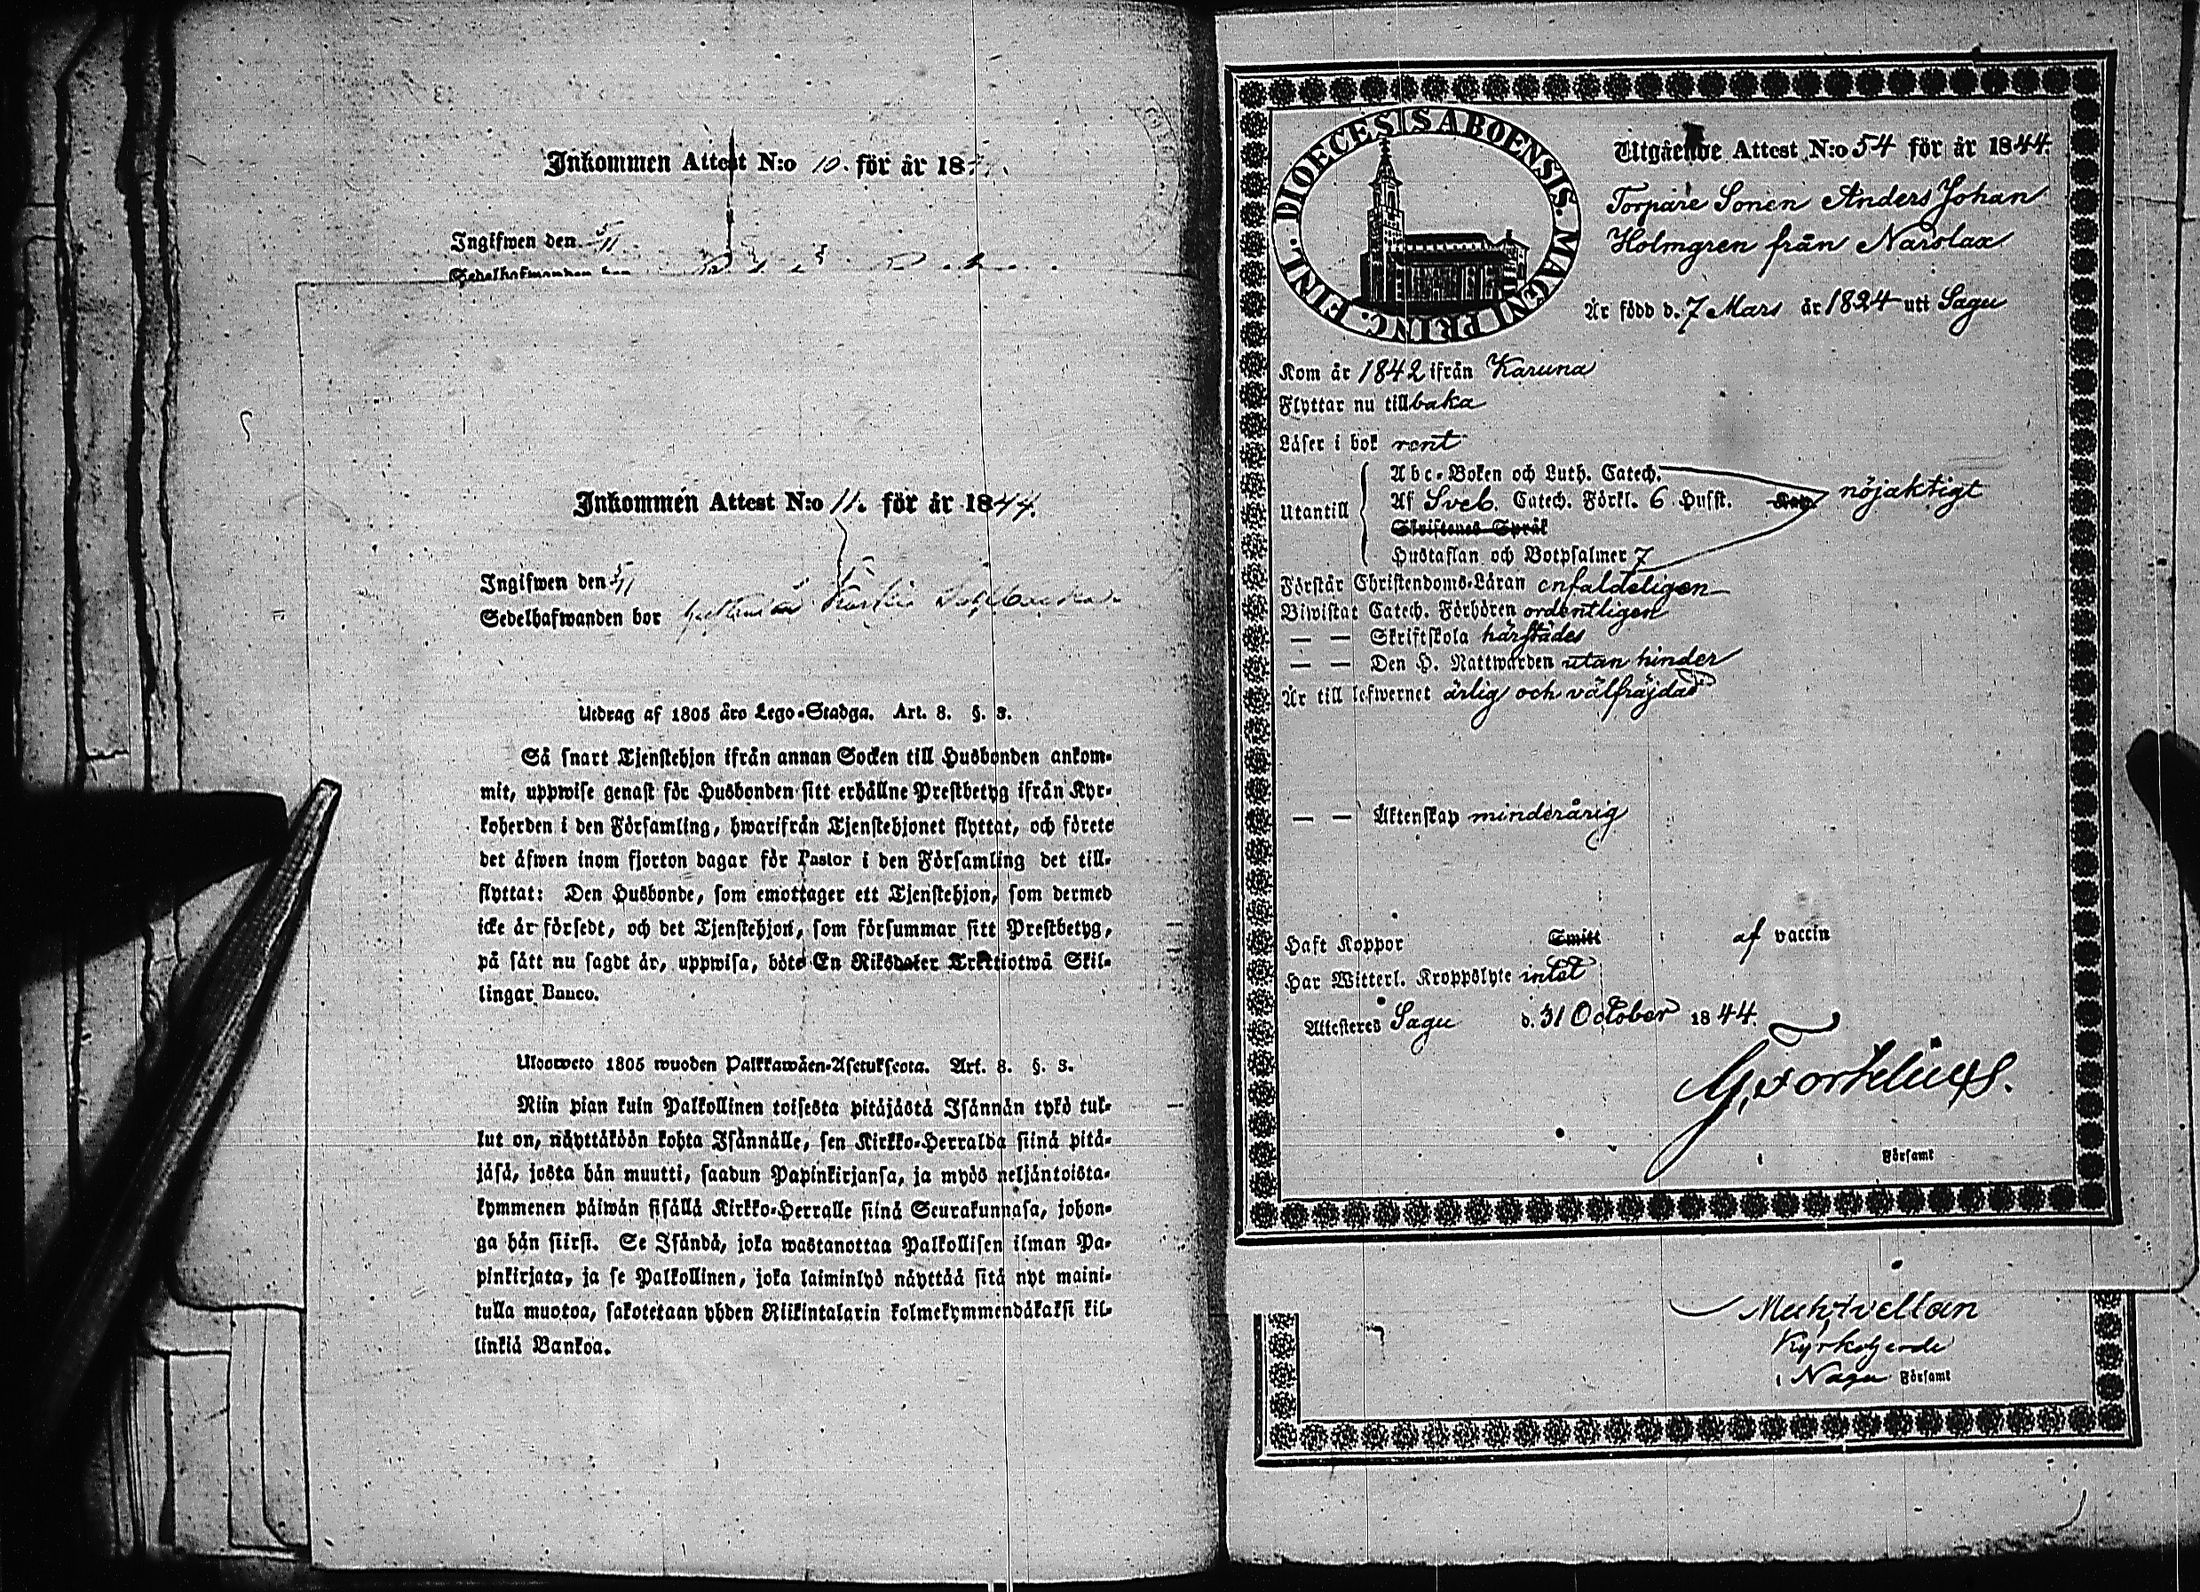 Inkommen Attest N:o 10. för år 18
Ingifwen den 5/11
Sedelhafwanden bor
Inkommen Attest N:o 11. för år 1844.
Ingifwen den 5/11
Sedelhafwanden bor
Utdrag af 1805 års Lego-Stadga. Art. 8. §. 3.
Så snart Tjenstehjon ifrån annan Socken till Husbonden ankom-
mit, uppwise genast för Husbonden sitt erhållne Prestbetyg ifrån Kyr-
koherden i den Församling, hwarifrån Tjenstehjonet flyttat, och förete
det äfwen inom fjorton dagar för Pastor i den Församling det till-
flyttat: Den Husbonde, som emottager ett Tjenstehjon, som dermed
icke är försedt, och det Tjenstehjon, som försummar sitt Prestbetyg,
på sätt nu sagdt är, uppwisa, böte En Riksdaler Trettiotwå Skil-
lingar Banco.
Ulosweto 1805 wuoden Palkkawäen-Asetuksesta. Art. 8. §. 3.
Niin pian kuin Palkollinen toisesta pitäjästä Isännän tykö tul-
lut on, näyttäköön kohta Isännälle, sen Kirkko-Herralda siinä pitä-
jäsä, josta hän muutti, saadun Papinkirjansa, ja myös neljäntoista-
kymmenen päiwän sisällä Kirkko-Herralle siinä Seurakunnasa, johon-
ga hän siirst. Se Isändä, joka wastanottaa Palkollisen ilman Pa-
pinkirjata, ja se Palkollinen, joka laiminlyö näyttää sitä nyt maini-
tulla muotoa, sakotetaan yhden Riikintalarin kolmekymmendäkaksi kil-
linkiä Bankoa.
DIOECESIS ABOENSIS. MAGNI PRINC. FINL.
Utgående Attest N:o 54 för år 1844.
Torpare Sonen Anders Johan
Holmgren från Narslax
Är född d. 7 Mars år 1824 uti Sagu
Kom år 1842 ifrån Karuna
Flyttar nu tillbaka
Läser i bok rent
Abc-Boken och Luth. Catech.
Utantill Af Sveb. Catech. Förkl. 6 Hufst. nöjaktigt
Skriftenes Språk
Hustaflan och Botpsalmer 7
Förstår Christendoms-Läran enfaldeligen
Biwistat Catech. Förhören ordentligen
— — Skriftskola härstädes
— — Den H. Nattwarden utan hinder
Är till lefwernet ärlig och välfräjdad
— — Äktenskap minderårig
Haft Koppor Smitt af vaccin
Har Witterl. Kroppslyte intet
Attesteres Sagu d. 31 October 1844.
G. Forteliues.
i Församl
Kyrkoherde
i Nagu Församl